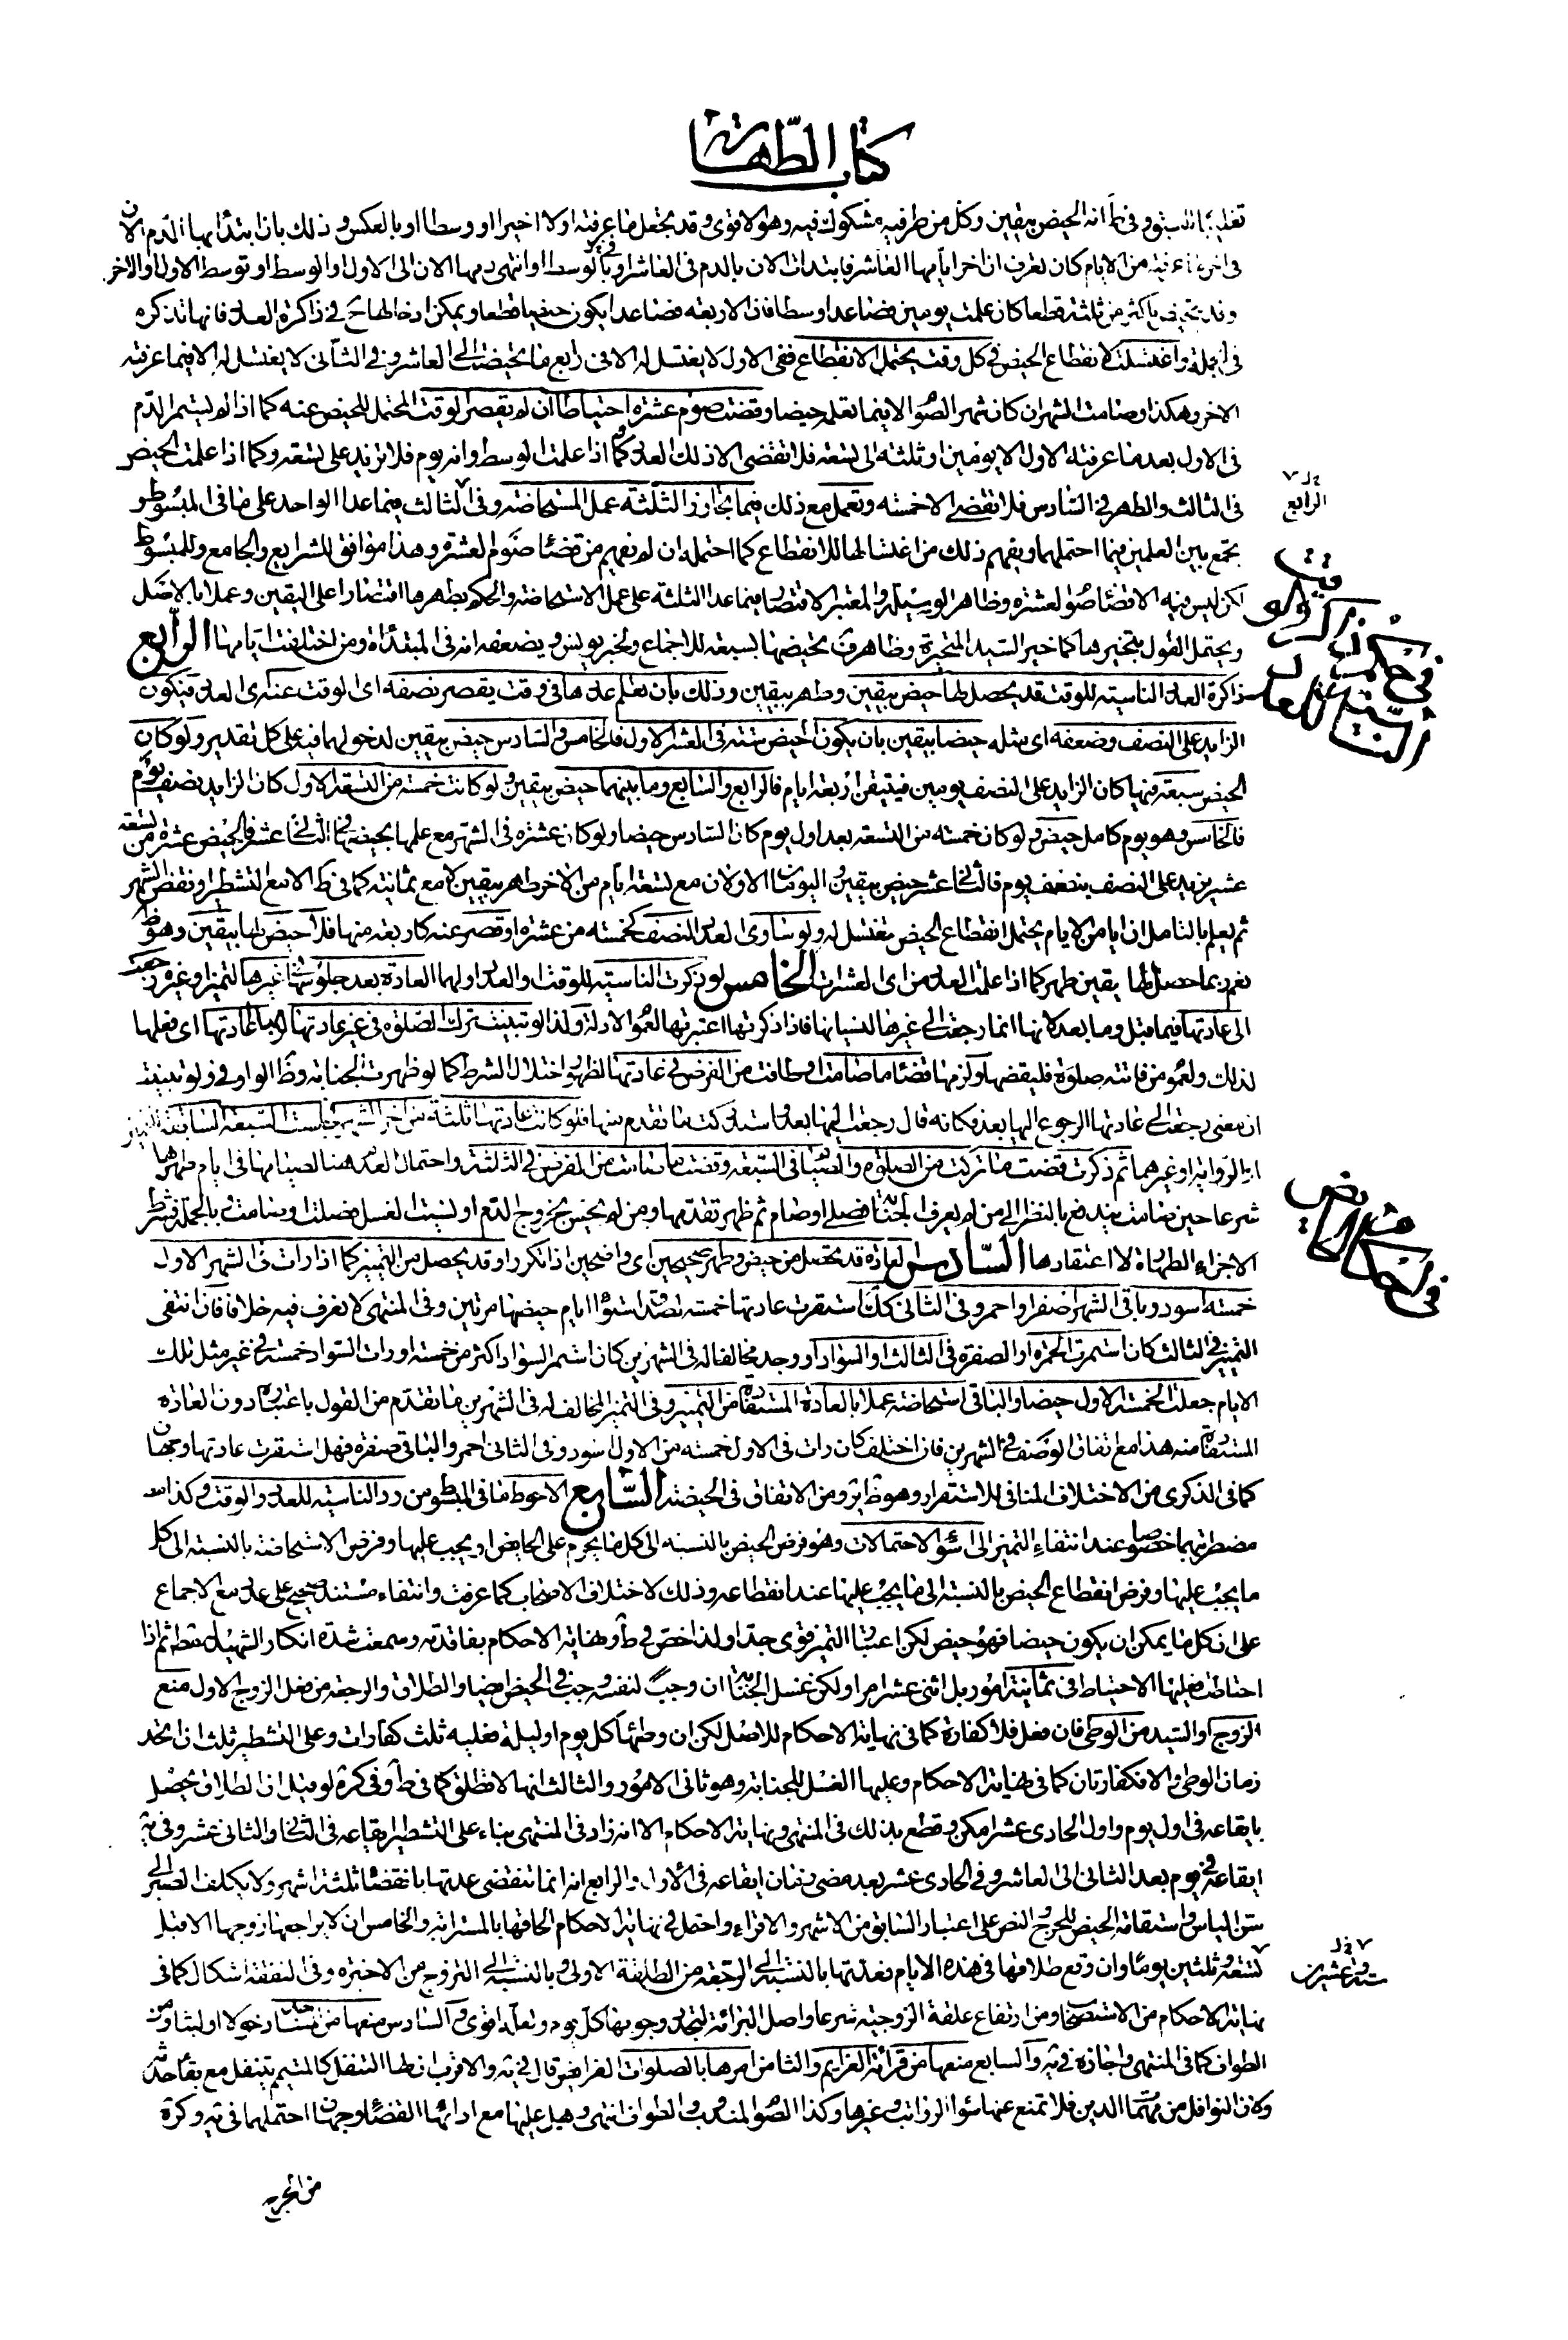 كتاب الطهارة
انه الحيض بيقين وكل من طرفيه مشكوك فيه وهو الاقوى وقد يجعل ما عرفته اولا اخيرا او وسطا او بالعكس وذلك بان ابتدأ بها الدم الان
من الايام كان تعرف ان اخر ايامها العاشر فابتدات الان بالدم فى العاشر او بالوسط او انتهى دمها الان الى الاول او الوسط او توسط الاول او الاخر
باكثر من ثلثة قطعا كان علمت يومين فصاعدا وسطا فان الاربعة فصاعدا يكون حيضا قطعا ويمكن ادخالها فى ذاكرة العدد فانها تذكره
فى الجملة واغتسلت لانقطاع الحيض فى كل وقت يحتمل الانقطاع ففى الاول لا يغتسل له الا فى رابع ما تحيضت الى العاشر وفى الثانى لا يغتسل له الا فيما عرفته
الاخر وهكذا وصامت الشهر ان كان شهر الصوم الا فيما تعلمه حيضا وقضت صوم عشرة احتياطا ان لم يقصر الوقت المحتمل للحيض عنه كما اذا لم يستمر الدم
فى الاول بعد ما عرفته الاول الا يومين او ثلثة الى تسعة فلا تقضى الا ذلك العدد وكما اذا علمت الوسط وانه يوم فلا تزيد على تسعة وكما اذا علمت الحيض
فى الثالث والطهر فى السادس فلا تقضى الا خمسة وتعمل مع ذلك فيما تجاوز الثلثة عمل المستحاضة وفى الثالث فيما عدا الواحد على ما فى المبسوط و
تجمع بين العملين فيما احتملهما ويفهم ذلك من اغتسالها للانقطاع كما احتمله ان لم نفهم من قضاء صوم العشرة وهذا موافق للشرايع والجامع وللمبسوط
لكن ليس فيه الا قضاء صوم العشرة وظاهر الوسيلة والمعتبر الاقتصار فيما عدا الثلثة على عمل الاستحاضة والحكم بطهرها اقتصارا على اليقين وعملا بالاصل
ويحتمل القول بتخييرها كما خير السيد المتحيرة وظاهر ف تحيضها بسبعة للاجماع ولخبر يونس ويضعفه انه فى المبتدأة ومن اختلفت ايامها الرابع
ذاكرة العدد الناسية للوقت قد يحصل لها حيض بيقين وطهر بيقين وذلك بان تعلم عددها فى وقت يقصر نصفه اى الوقت عنه اى العدد فيكون
الزايد على النصف وضعفه اى مثله حيضا بيقين بان يكون الحيض ستة فى العشر الاول فالخامس والسادس حيض بيقين لدخولهما فيه على كل تقدير ولو كان
الحيض سبعة فيها كان الزايد على النصف يومين فيتيقن اربعة ايام فالرابع والسابع وما بينهما حيض بيقين ولو كانت خمسة من التسعة الاول كان الزايد نصف يوم
فالخامس وهو يوم كامل حيض ولو كان خمسة من التسعة بعد اول يوم كان السادس حيضا ولو كان عشرة فى الشهر مع علمها بحيضها فى الثانى عشر فالحيض عشرة من تسعة
عشر يزيد على النصف بنصف يوم فالثانى عشر حيض بيقين واليومان الاولان مع تسعة ايام من الاخر طهر بيقين لا مع ثمانية كما فى ط الا مع التشطير ونقص الشهر
ثم يعلم بالتامل ان ايا من الايام يحتمل انقطاع الحيض فتغتسل له ولو ساوى العدد النصف كخمسة من عشرة او قصر عنه كاربعة منها فلا حيض لها بيقين وهو ظ
نعم ربما حصل لها يقين طهر كما اذا علمت العدد من اى العشرات الخامس لو ذكرت الناسية للوقت او العدد او لهما العادة بعد جلوسها فى غيرها لتميز وغيره رجعت
الى عادتها فيما قبل وما بعد لانها انما رجعت الى غيرها لنسيانها فاذا ذكرتها اعتبرتها لعموم الادلة ولذا لو تبينت ترك الصلوة فى غير عادتها لزمها اعادتها اى فعلها
لذلك ولعموم من فاتته صلوة فليقضها ولزمها قضاء ما صامت من الفرض فى عادتها لظهور اختلال الشرط كما لو ظهرت الجنابة وظ الواو فى ولو تبينت
ان معنى رجعت الى عادتها الرجوع اليها بعد فكانه قال رجعت اليها بعد واستدركت ما تقدم منها فلو كانت عادتها ثلثة من اخر الشهر فجلست السبعة السابقة للتميز
او الرواية او غيرهما ثم ذكرت قضت ما تركت من الصلوة والصيام فى السبعة وقضت ما صامت من الفرض فى الثلثة واحتمال العدم هنا لصيامها فى ايام طهرها
شرعا حين صامت يندفع بالنظر الى من لم يعرف الجنابة فصلى او صام ثم ظهر تقدمها ومن لم تحس بخروج الدم او نسيت الغسل فصلت او صامت وبالجملة فشرط
الاجزاء الطهارة لا اعتقادها السادس العادة قد تحصل من حيض وطهر صحيحين اى واضحين اذا تكررا وقد يحصل من التميز كما اذا رات فى الشهر الاول
خمسة اسود وباقى الشهر اصفر او احمر وفى الثانى كذلك استقرت عادتها خمسة لصدق استواء ايام حيضها مرتين وفى المنتهى لا نعرف فيه خلافا فان انتفى
التميز فى الثالث كان استمرت الحمرة او الصفرة فى الثالث او السواد او وجد مخالفا له فى الشهرين كان استمر السواد اكثر من خمسة او رات السواد خمسة فى غير مثل تلك
الايام جعلت الخمسة الاول حيضا والباقى استحاضة عملا بالعادة المستفادة من التميز وفى التميز المخالف له فى الشهرين ما تقدم من القول باعتباره دون العادة
المستفادة منه هذا مع اتفاق الوصف فى الشهرين فان اختلف كان رات فى الاول خمسة من الاول اسود وفى الثانى احمر والباقى صفرة فهل استقرت عادتها وجهان
كما فى الذكرى من الاختلاف المنافى للاستقرار وهو ظ اثر ومن الاتفاق فى الحيضة السابع الاحوط ما فى المبسوط من رد الناسية للعدد والوقت وكذا
مضطربهما خصوصا عند انتفاء التميز الى اسوء الاحتمالات وهو فرض الحيض بالنسبة الى كل ما يحرم على الحايض او يجب عليها وفرض الاستحاضة بالنسبة الى كل
ما يجب عليها وفرض انقطاع الحيض بالنسبة الى ما يجب عليها عند انقطاعه وذلك لاختلاف الاصحاب كما عرفت وانتفاء مستند صحيح على عدد مع الاجماع
على ان كل ما يمكن ان يكون حيضا فهو حيض لكن اعتبار التميز قوى جدا ولذا خص فى ط ونهاية الاحكام بفاقدته وسمعت شدة انكار الشهيد ثم اذا
احتاطت فعليها الاحتياط فى ثمانية امور بل اثنى عشر امرا ولكن غسل الجنابة ان وجب لنفسه وجب فى الحيض ايضا والطلاق والرجعة من فعل الزوج الاول منع
الزوج او السيد من الوطى فان فعل فلا كفارة كما فى نهاية الاحكام للاصل لكن ان وطئها كل يوم او ليلة فعليه ثلث كفارات وعلى التشطير ثلث ان اتحد
زمان الوطى والا فكفارتان كما فى نهاية الاحكام وعليها الغسل للجنابة وهو ثانى الامور والثالث انها لا تطلق كما فى ط وفى كرة لو قيل ان الطلاق يحصل
بايقاعه فى اول يوم واول الحادى عشر امكن وقطع بذلك فى المنتهى ونهاية الاحكام الا انه زاد فى المنتهى بناء على التشطير ايقاعه فى الثانى والثانى عشر وفى ية
ايقاعه فى يوم بعد الثانى الى العاشر وفى الحادى عشر بعد مضى زمان ايقاعه فى الاول والرابع انه انما تنقضى عدتها بانقضاء ثلثة اشهر ولا يكلف الصبر الى
سن الياس او استقامة الحيض للحرج والنص على اعتبار السابق من الاشهر والاقراء واحتمل فى نهاية الاحكام الحاقها بالمسترابة والخامس ان لا يراجعها زوجها الا قبل
تسعة وثلثين يوما وان وقع طلاقها فى هذه الايام فعدتها بالنسبة الى الرجعة من الطلقة الاولى وبالنسبة الى التزوج من الاخيرة وفى النفقة اشكال كما فى
نهاية الاحكام من الاستصحاب ومن ارتفاع علقة الزوجية شرعا واصل البرائة لتجدد وجوبها كل يوم ولعله اقوى والسادس منعها من المساجد دخولا او لبثا ومن
الطواف كما فى المنتهى واجازه فى ية والسابع منعها من قرائة العزايم والثامن امرها بالصلوات الفرايض قال فى ية والاقرب ان لها التنفل كالمتيمم يتنفل مع بقاء حدثه
ولان النوافل من مهمات الدين فلا تمنع عنها سواء الرواتب وغيرها وكذا الصوم المندوب والطواف انتهى وهل عليها مع ادائها القضاء وجهان احتملهما فى ية وكرة
الرابع
فى حكم ذاكرة الوقت
الناسية للعدد
فى احكام الحايض